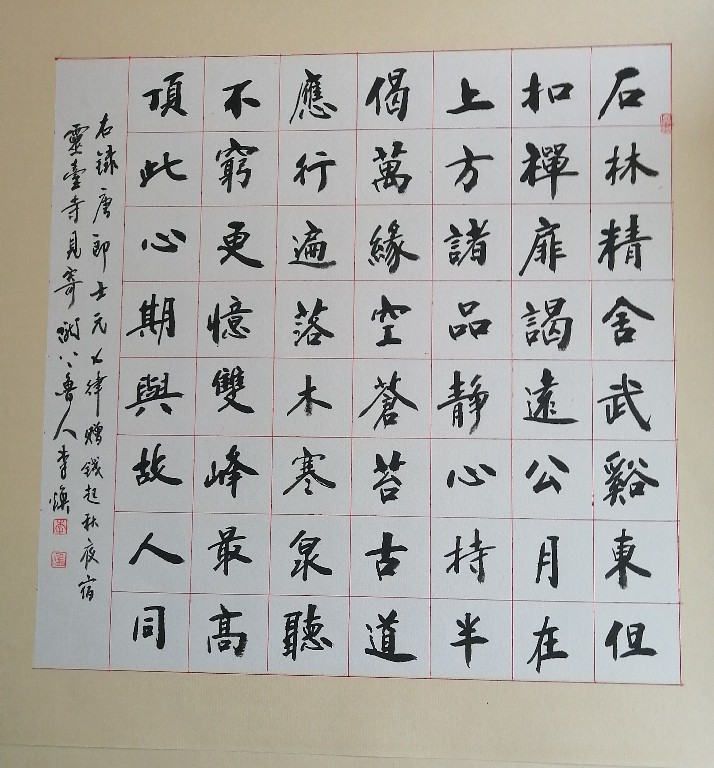 石林精舍武谿東但
扣禪扉謁遠公月在
上方諸品靜心持半
偈萬緣空蒼苔古道
應行遍落木寒泉聽
不窮更憶雙峰最高
頂此心期與故人同
右錄唐郎士元七律贈錢起秋夜宿
靈臺寺見寄 魯人李煥